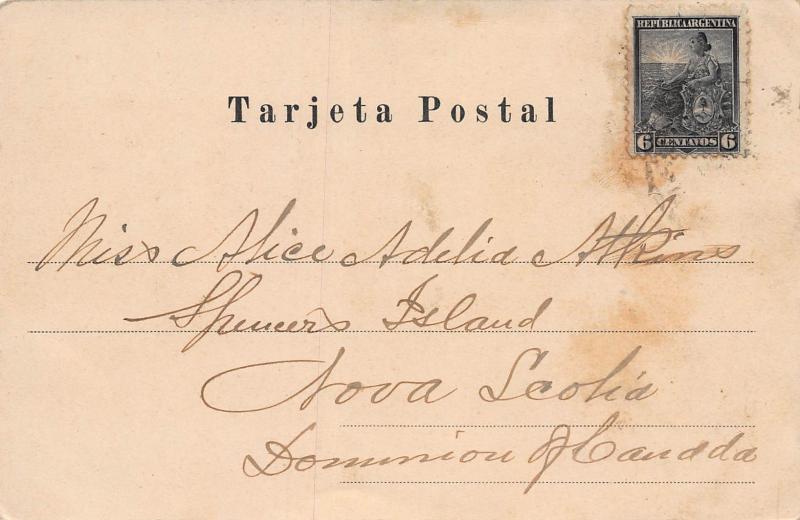 REPUBLICA ARGENTINA
6 CENTAVOS 6
Tarjeta Postal
Miss Alice Adelia Atkins
Spencers Island
Nova Scotia
Dominion of Canada